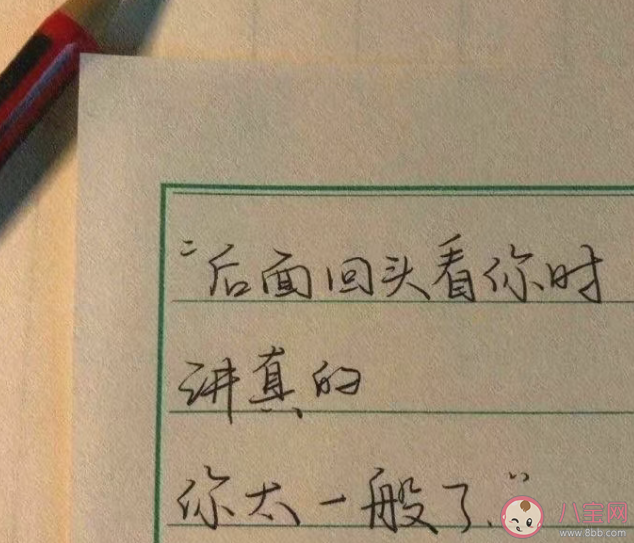 “后面回头看你时
讲真的
你太一般了.”
八宝网
www.8bb.com